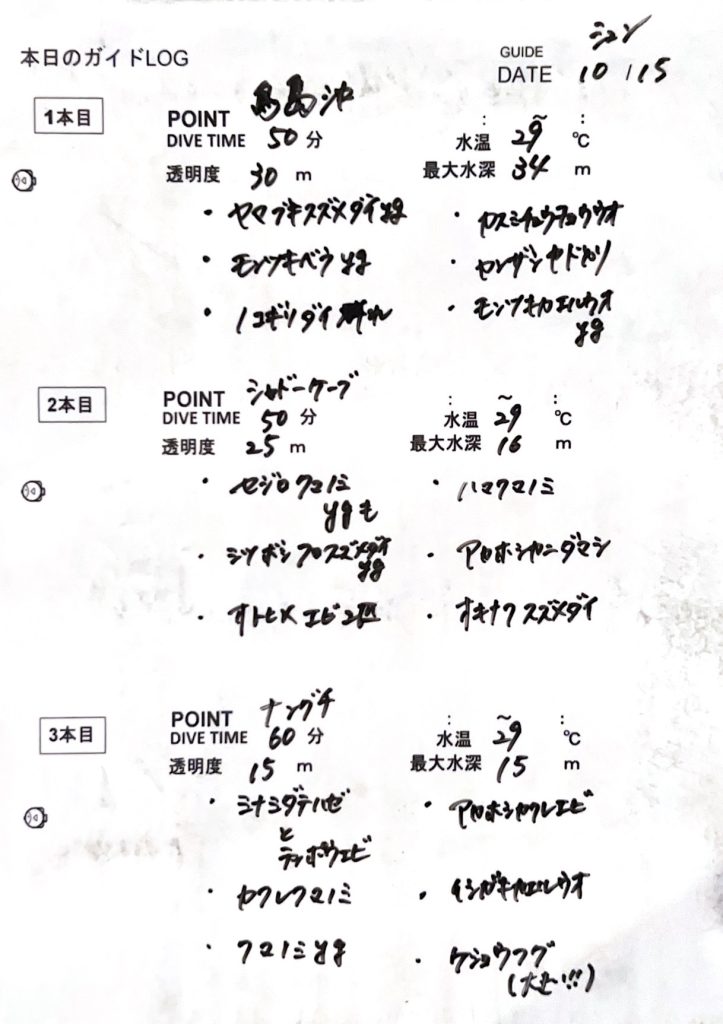 シュン
本日のガイドLOG
GUIDE
DATE 10 / 15
1本目
POINT
DIVE TIME 50 分
水温 29 ~ ℃
透明度 30 m
最大水深 34 m
・ヤマブキスズメダイyg
・カスミチョウチョウウオ
・モンツキベラyg
・センザンヤドカリ
・ノコギリダイ 群れ
・モンツキカエルウオ
yg
2本目
POINT シャドーケーブ
DIVE TIME 50 分
水温 29 ~ ℃
透明度 25 m
最大水深 16 m
・セジロクマノミ
ygも
・ハマクマノミ
・ミツボシクロスズメダイ
yg
・アカホシカニダマシ
・オトヒメエビ2匹
・オキナワスズメダイ
3本目
POINT ナングチ
DIVE TIME 60 分
水温 29 ~ ℃
透明度 15 m
最大水深 15 m
・ミナミダテハゼ
と
テッポウエビ
・アカホシカクレエビ
・カクレクマノミ
・イシガキカエルウオ
・クマノミyg
・ケショウフグ